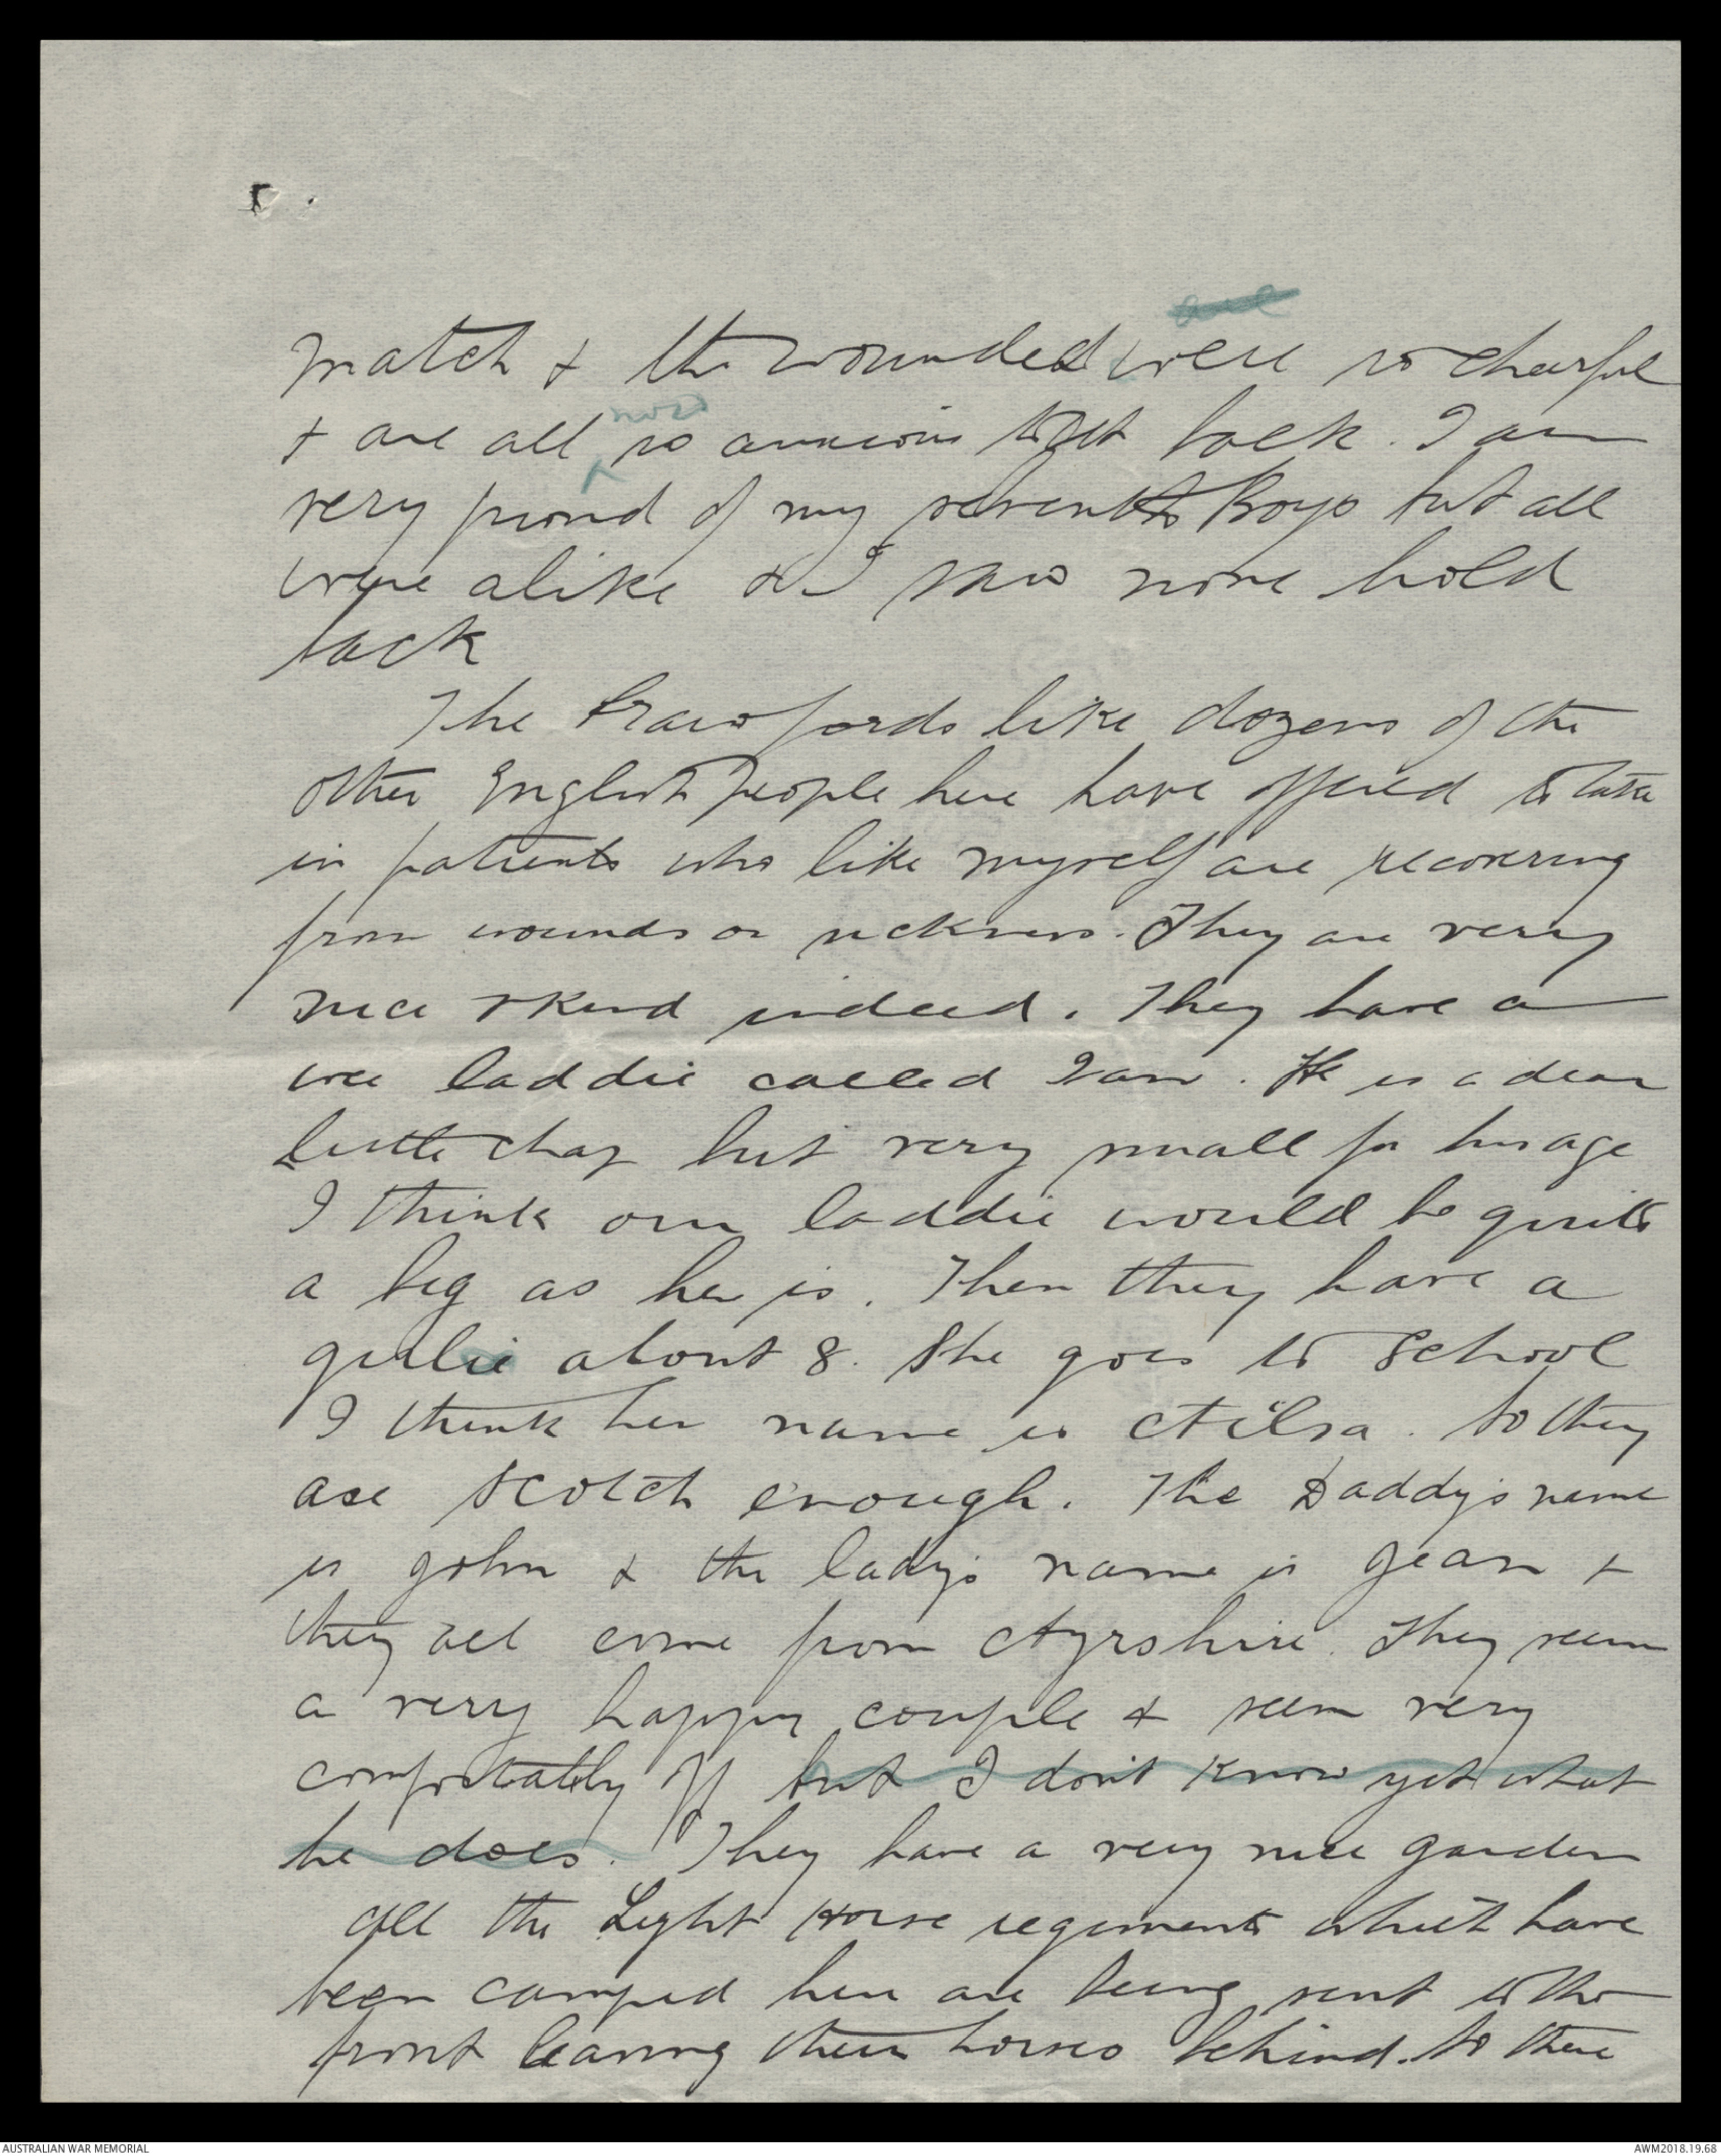 are
match & the wounded were so cheerful
now
& are all so anxious to get back. I am
very proud of my seventh Boys but all
were alike & I saw none hold
back
The Crawfords like dozens of the
other English People here have offered to take
in patients who like myself are recovering
from wounds or sickness. They are very
nice & kind indeed. They have a
wee laddie called Ian. He is a dear
little chap but very small for his age
I think our laddie would be quite
a big as he is. Then they have a
girlie about 8. She goes to School
I think her name is Ailsa. So they
are Scotch enough. The Daddy's name
is John & the lady's name is Jean &
they all come from Ayrshire. They seem
a very happy couple & seem very
comfortably off but I don't know yet what
he does. They have a very nice garden
All the Light Horse regiments which have
been camped here are being sent to the
front leaving their horses behind. So there
AUSTRALIAN WAR MEMORIAL
AWM2018.19.68